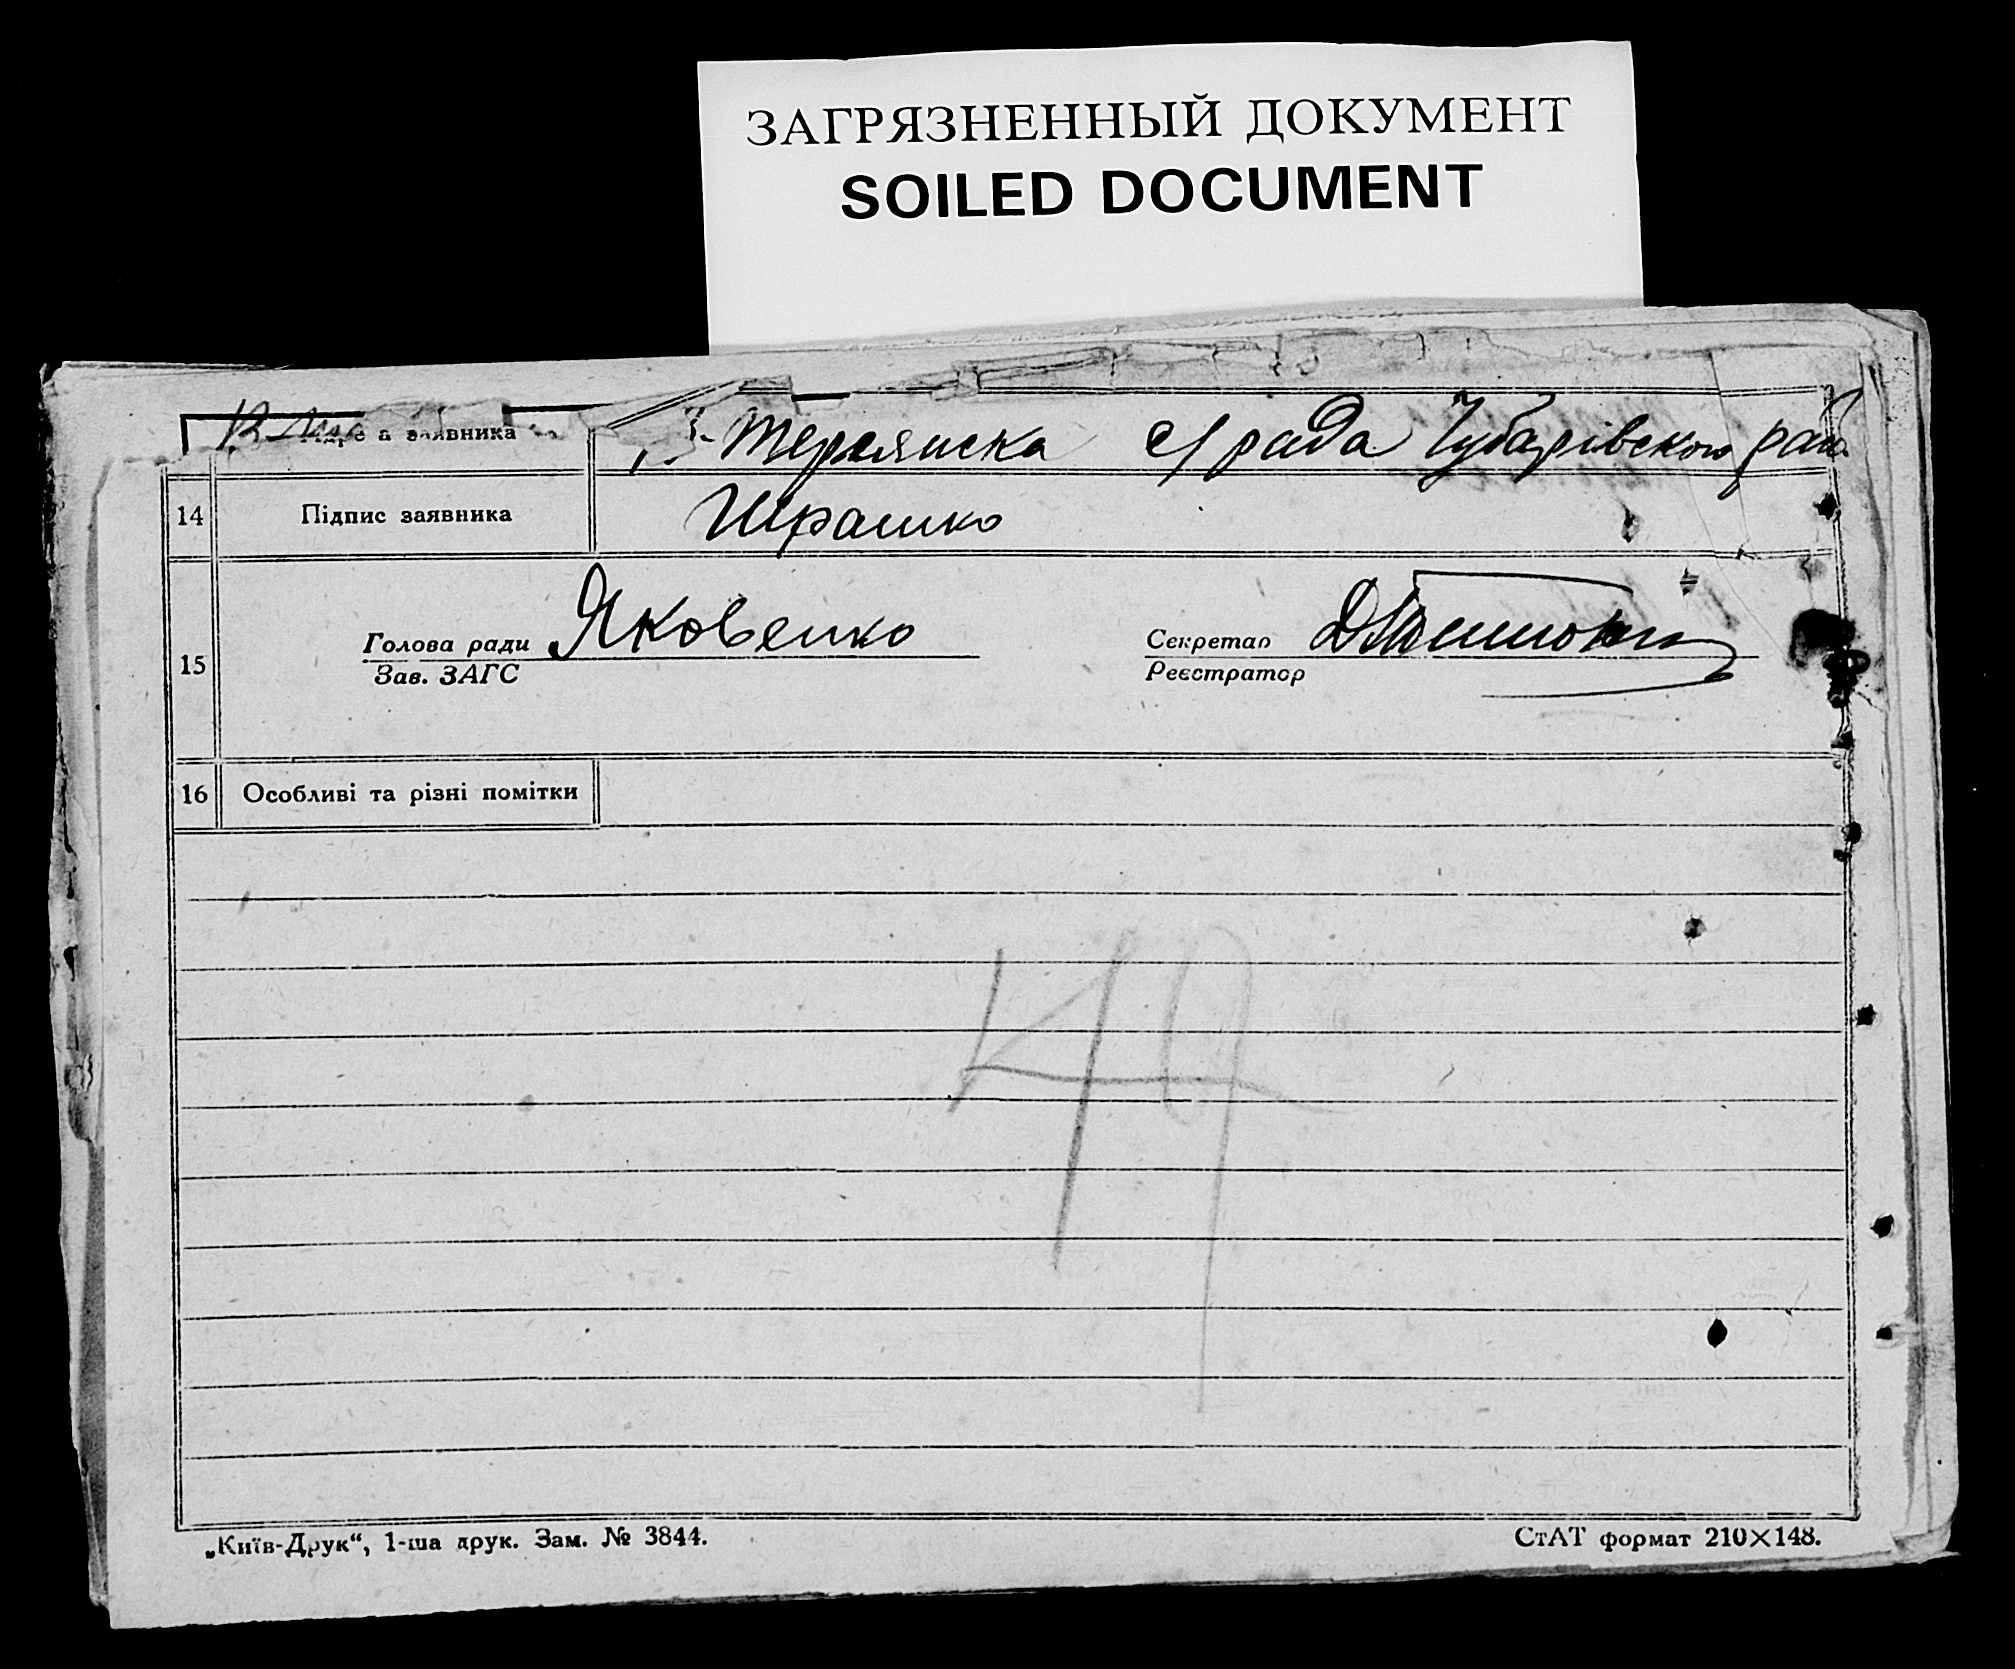 ЗАГРЯЗНЕННЫЙ ДОКУМЕНТ
SOILED DOCUMENT
заявника с/рада Чубарівского рай.
14 Підпис заявника
15 Голова ради Яковенко Секретар
Зав. ЗАГС Реєстратор
16 Особливі та різні помітки
49
„Київ-Друк“, 1-ша друк. Зам. № 3844. СтАТ формат 210×148.